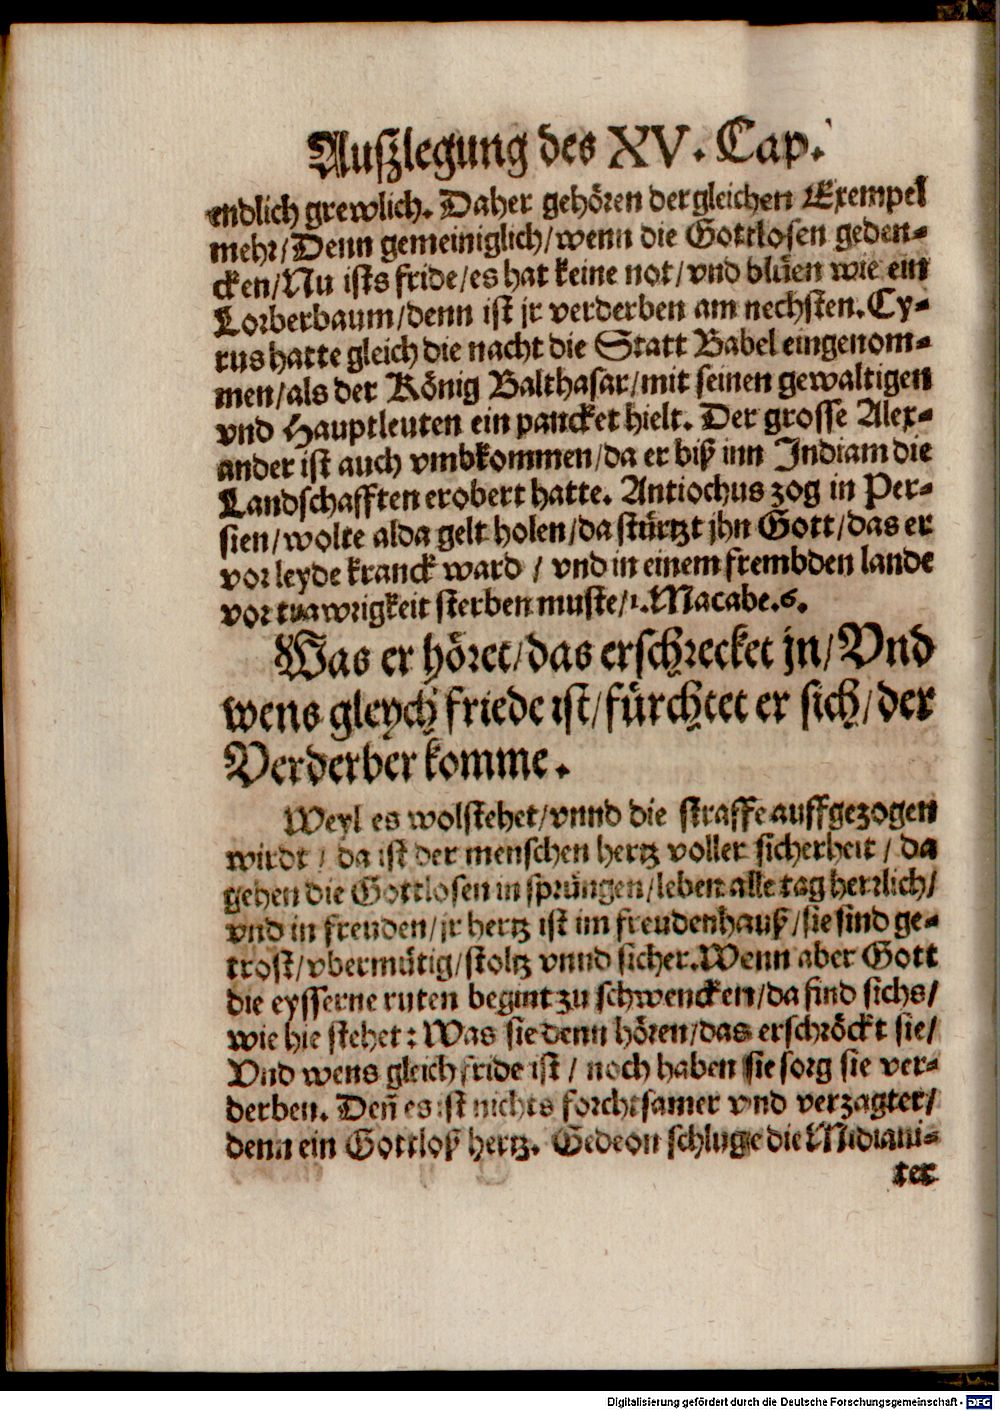 Auszlegung des XV. Cap.
endlich grewlich. Daher gehören dergleichen Exempel
mehr/Denn gemeiniglich/wenn die Gottlosen geden-
cken/Nu ists fride/es hat keine not/vnd blüen wie ein
Lorberbaum/denn ist jr verderben am nechsten. Cy-
rus hatte gleich die nacht die Statt Babel eingenom-
men/als der König Balthasar/mit seinen gewaltigen
vnd Hauptleuten ein pancket hielt. Der grosse Alex-
ander ist auch vmbkommen/da er biß inn Indiam die
Landschafften erobert hatte. Antiochus zog in Per-
sien/wolte alda gelt holen/da stürtzt jhn Gott/das er
vor leyde kranck ward / vnd in einem frembden lande
vor trawrigkeit sterben muste/1. Macabe. 6.
Was er höret/das erschrecket jn/Vnd
wens gleych friede ist/fürchtet er sich/der
Verderber komme.
Weyl es wolstehet/vnnd die straffe auffgezogen
wirdt / da ist der menschen hertz voller sicherheit / da
gehen die Gottlosen in sprüngen/leben alle tag herrlich/
vnd in freuden/jr hertz ist im freudenhauß/sie sind ge-
trost/vbermütig/stoltz vnnd sicher. Wenn aber Gott
die eysserne ruten begint zu schwencken/da find sichs/
wie hie stehet: Was sie denn hören/das erschröckt sie/
Vnd wens gleich fride ist / noch haben sie sorg sie ver-
derben. Deñ es ist nichts forchtsamer vnd verzagter/
denn ein Gottloß hertz. Gedeon schluge die Midiani-
ter
Digitalisierung gefördert durch die Deutsche Forschungsgemeinschaft - DFG